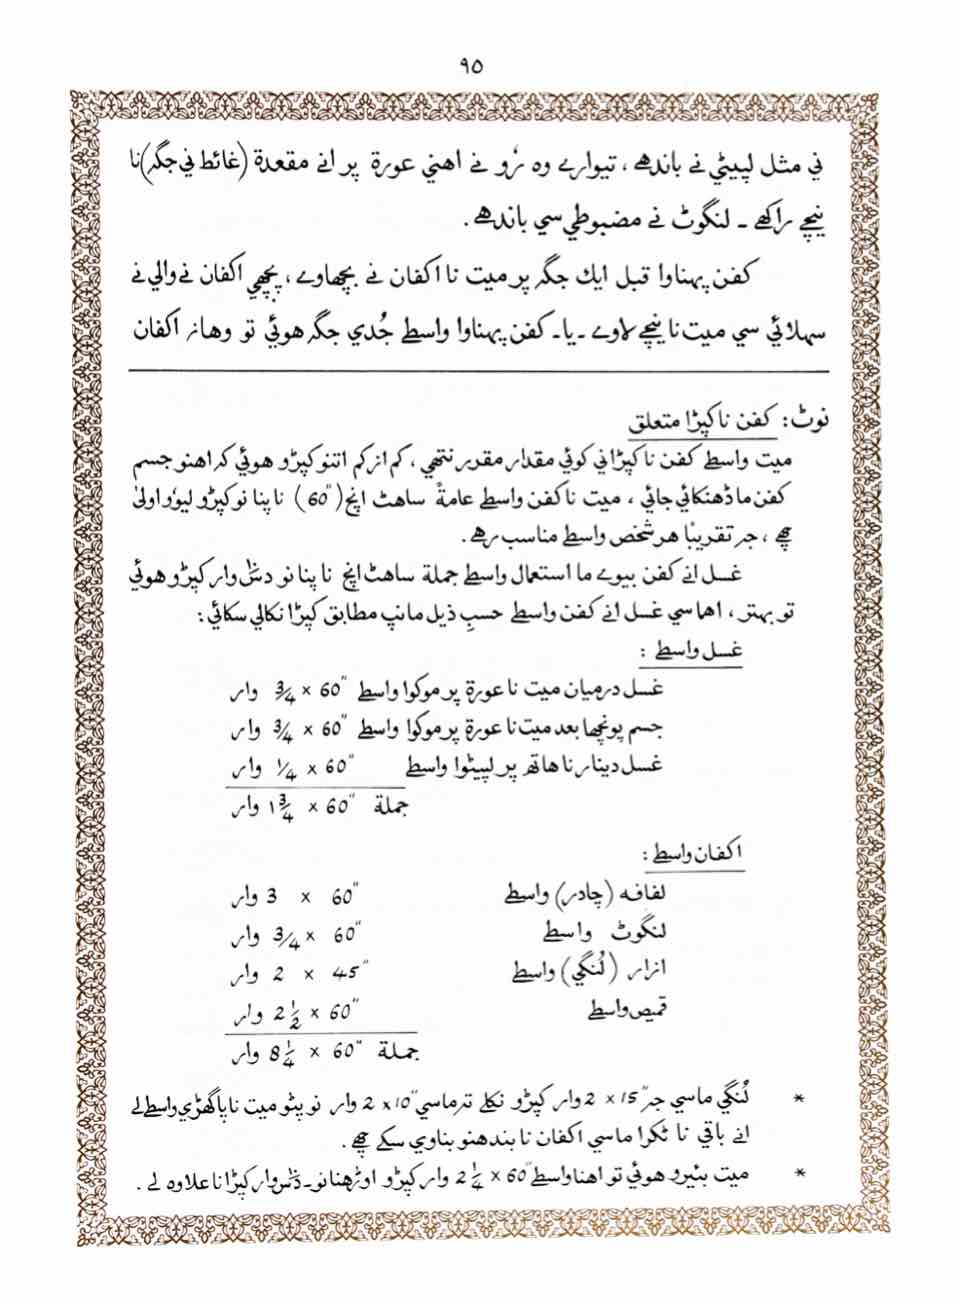 ٩٥
ني مثل لپيٹي نے باندھے ، تيوارے وہ رُو نے اهني عورة پر انے مقعدة (غائط ني جگہ) نا
نيچے راكھے ـ لنگوٹ نے مضبوطي سي باندھے .
كفن پہناوا قبل ايك جگہ پر ميت نا اكفان نے بچھاوے ، پچھي اكفان نے والي نے
سہلائي سي ميت نا نيچے لاوے ـ يا ـ كفن پہناوا واسطے جُدي جگہ هوئي تو وهاں اكفان
نوٹ : كفن نا كپڑا متعلق
ميت واسطے كفن نا كپڑا ني كوئي مقدار مقرر نتھي ، كم از كم اتنو كپڑو هوئي كہ اهنو جسم
كفن ما ڈھنكائي جائي ، ميت نا كفن واسطے عامةً ساهٹ انچ (60") نا پنا نو كپڑو ليوو اولىٰ
چھے ، جہ تقريبًا هر شخص واسطے مناسب رهے .
غسل انے كفن بيوے ما استعمال واسطے جملة ساهٹ انچ نا پنا نو دس وار كپڑو هوئي
تو بهتر ، اهما سي غسل انے كفن واسطے حسبِ ذيل ماپ مطابق كپڑا نكالي سكائي :
غسل واسطے :
غسل درميان ميت نا عورة پر موكوا واسطے 60" × 3/4 وار
جسم پونچھا بعد ميت نا عورة پر موكوا واسطے 60" × 3/4 وار
غسل دينار نا هاتھ پر لپيٹوا واسطے 60" × 1/4 وار
جملة 60" × 1 3/4 وار
اكفان واسطے :
لفافه (چادر) واسطے 60" × 3 وار
لنگوٹ واسطے 60" × 3/4 وار
ازار (لُنگي) واسطے 45" × 2 وار
قميص واسطے 60" × 2 1/2 وار
جملة 60" × 8 1/4 وار
* لُنگي ماسي جہ 15" × 2 وار كپڑو نكلے تہ ماسي 10" × 2 وار نو پٹو ميت نا پاگھڑي واسطے لے
انے باقي نا ٹكرا ماسي اكفان نا بندهنو بناوي سكے چھے .
* ميت بئيرو هوئي تو اهنا واسطے 60" × 2 1/4 وار كپڑو اوڑهنا نو ـ دس وار كپڑا نا علاوه لے .